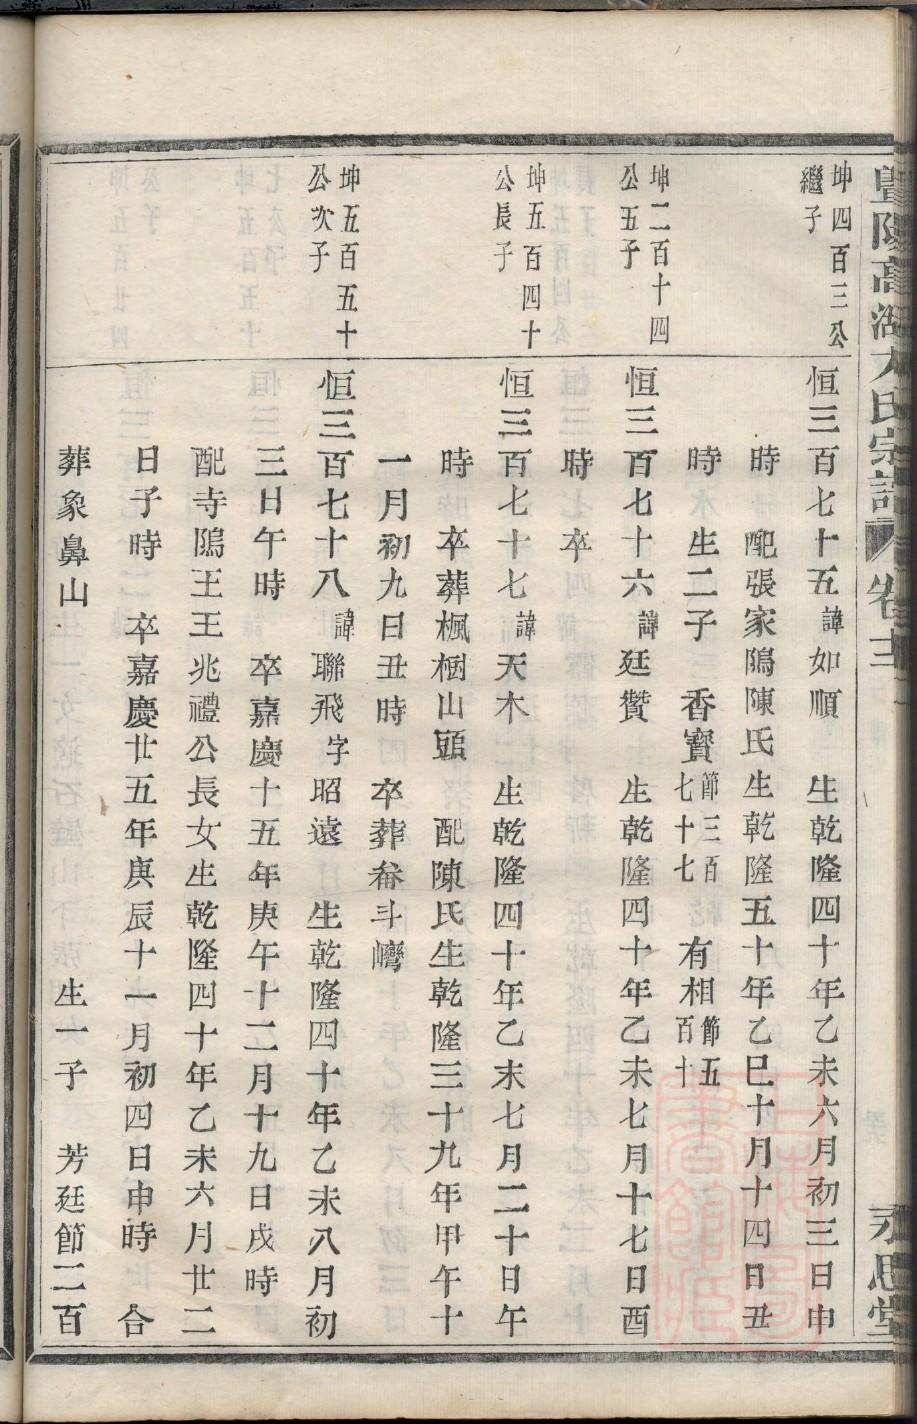 暨陽高湖方氏宗譜 卷十二 永思堂
坤四百三公
繼子
恒三百七十五諱如順 生乾隆四十年乙未六月初三日申
時 配張家隝陳氏生乾隆五十年乙巳十月十四日丑
時 生二子 香寶節三百七十七 有相節五百十
坤二百十四
公五子
恒三百七十六諱廷贊 生乾隆四十年乙未七月十七日酉
時 卒
坤五百四十
公長子
恒三百七十七諱天木 生乾隆四十年乙未七月二十日午
時 卒葬楓樹山頭 配陳氏生乾隆三十九年甲午十
一月初九日丑時 卒葬畚斗灣
坤五百五十
公次子
恒三百七十八諱聯飛字昭遠 生乾隆四十年乙未八月初
三日午時 卒嘉慶十五年庚午十二月十九日戌時
配寺隝王王兆禮公長女生乾隆四十年乙未六月廿二
日子時 卒嘉慶廿五年庚辰十一月初四日申時 合
葬象鼻山 生一子 芳廷節二百